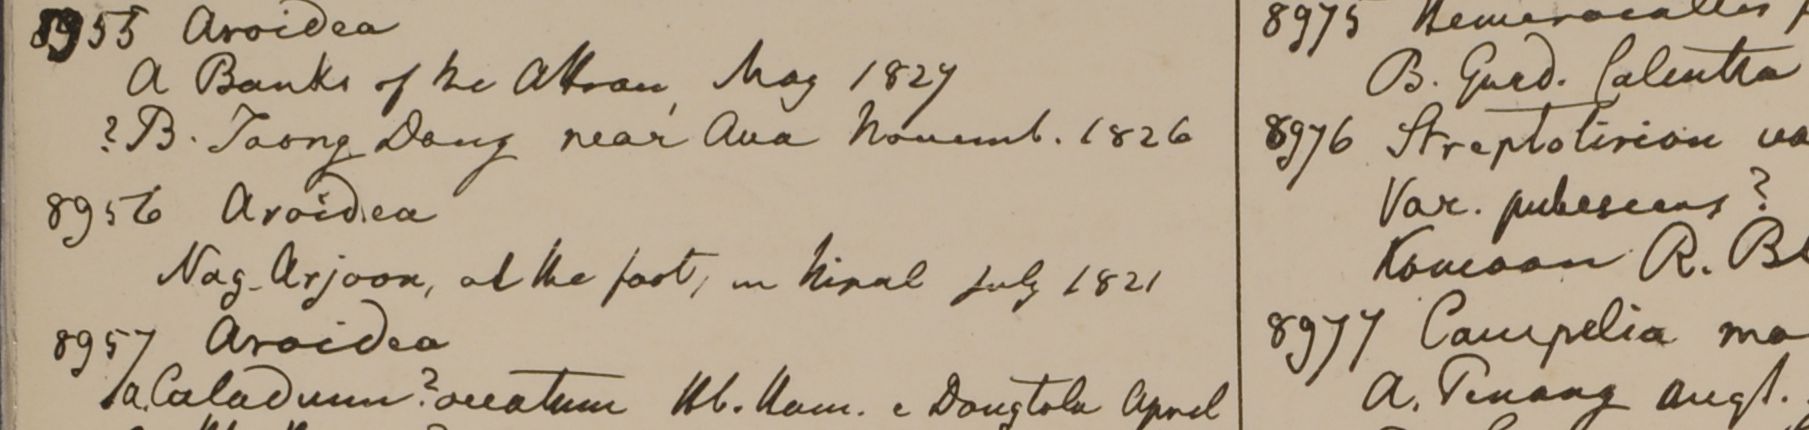 8955 Aroidea
A Banks of the Attran, May 1827
? B. Toong Dong near Ava Novemb. 1826
8956 Aroidea
Nag-Arjoon, at the foot, in Nipal July 1821
8957 Aroidea
a. Caladium? Hb. Ham. e Dongtola April
8975 Hemerocallis
B. Gard. Calcutta
8976 Streptolirion
Var. pubescens?
Kumaon R. Bl
8977 Campelia ma
A. Penang Augt.